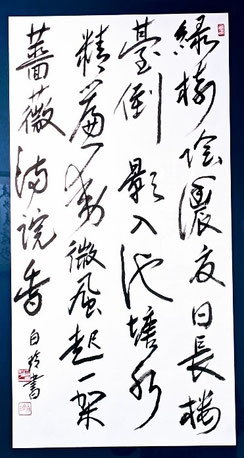 綠樹陰濃夏日長樓
臺倒影入池塘水
精簾動微風起一架
薔薇滿院香
白玲書